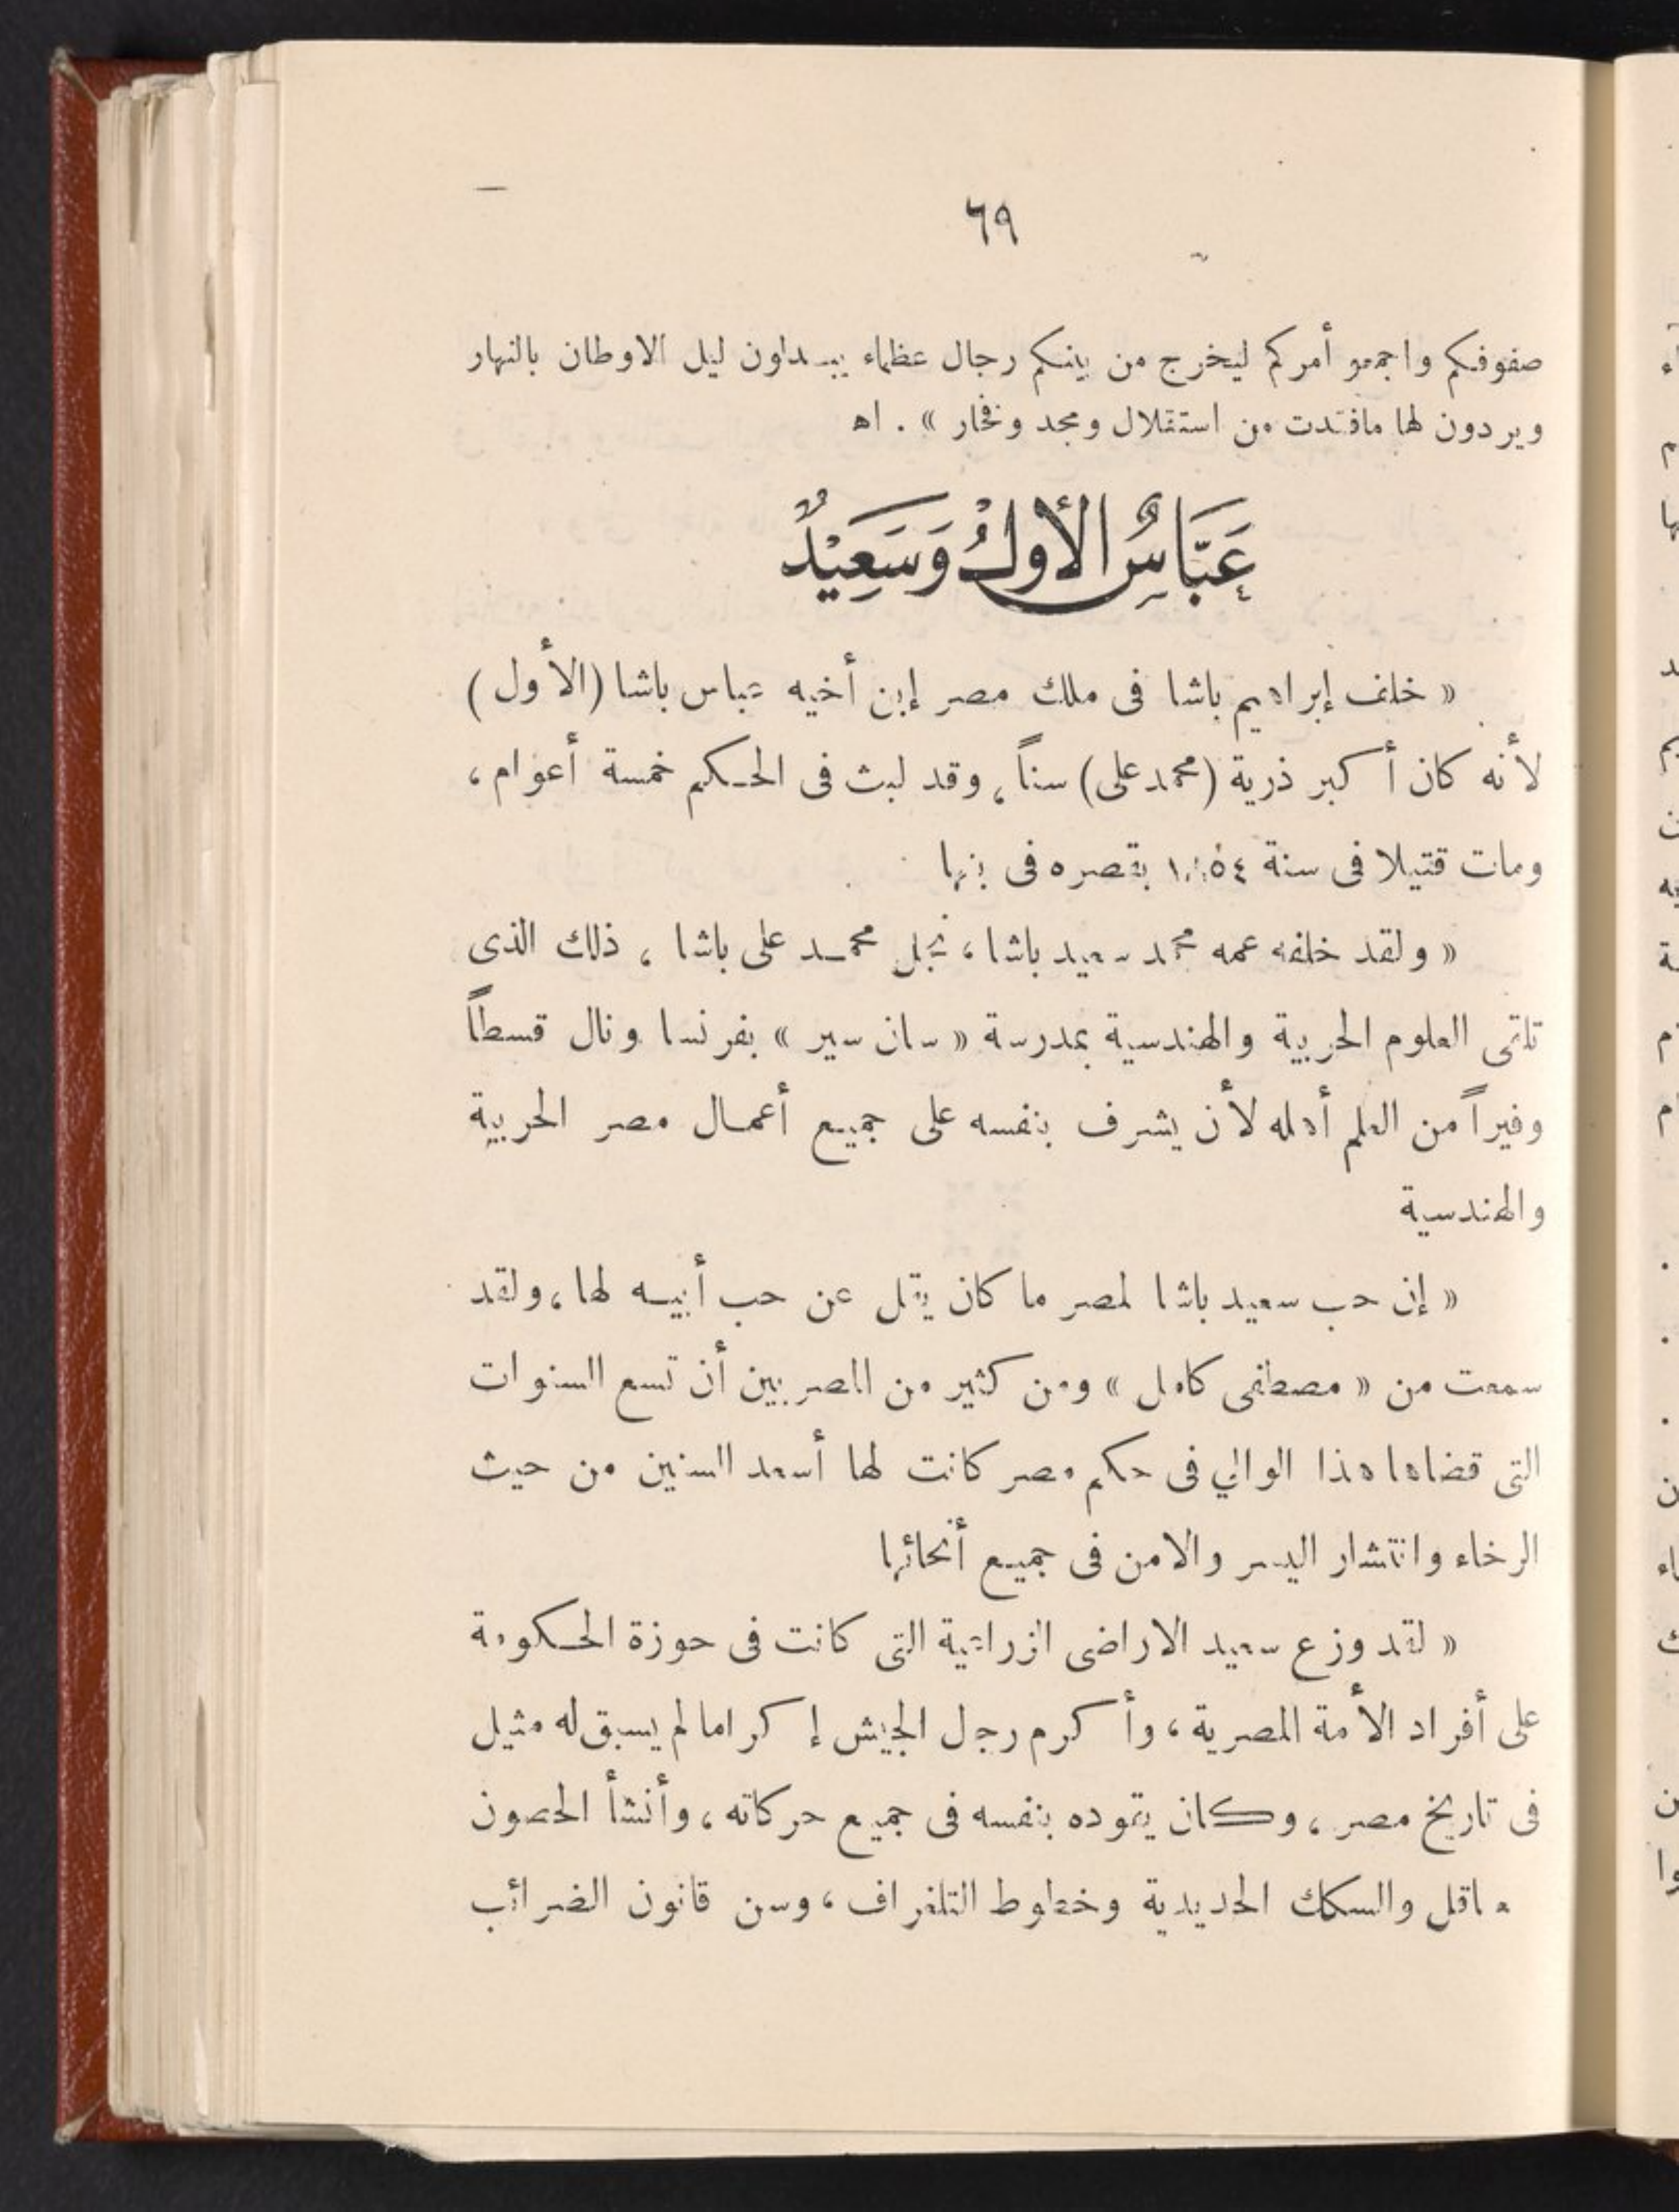 ٦٩
صفوفكم واجمعو أمركم ليخرج من بينكم رجال عظماء يبدلون ليل الاوطان بالنهار
ويردون لها مافقدت من استقلال ومجد وفخار » . اه
عَبَّاسُ الأَولُ وَسَعِيْدٌ
« خلف إبراهيم باشا فى ملك مصر إبن أخيه عباس باشا (الأول)
لأنه كان أكبر ذرية (محمد على) سناً ، وقد لبث فى الحكم خمسة أعوام ،
ومات قتيلا فى سنة ١٨٥٤ بقصره فى بنها
« ولقد خلفه عمه محمد سعيد باشا ، نجل محمد على باشا ، ذلك الذى
تلقى العلوم الحربية والهندسية بمدرسة « سان سير » بفرنسا ونال قسطاً
وفيراً من العلم أهله لأن يشرف بنفسه على جميع أعمال مصر الحربية
والهندسية
« إن حب سعيد باشا لمصر ما كان يقل عن حب أبيه لها ، ولقد
سمعت من « مصطفى كامل » ومن كثير من المصريين أن تسع السنوات
التى قضاها هذا الوالي فى حكم مصر كانت لها أسعد السنين من حيث
الرخاء وانتشار اليسر والامن فى جميع أنحائها
« لقد وزع سعيد الاراضى الزراعية التى كانت فى حوزة الحكومة
على أفراد الأمة المصرية ، وأكرم رجل الجيش إكراما لم يسبق له مثيل
فى تاريخ مصر ، وكان يقوده بنفسه فى جميع حركاته ، وأنشأ الحصون
والسكك الحديدية وخطوط التلغراف ، وسن قانون الضرائب